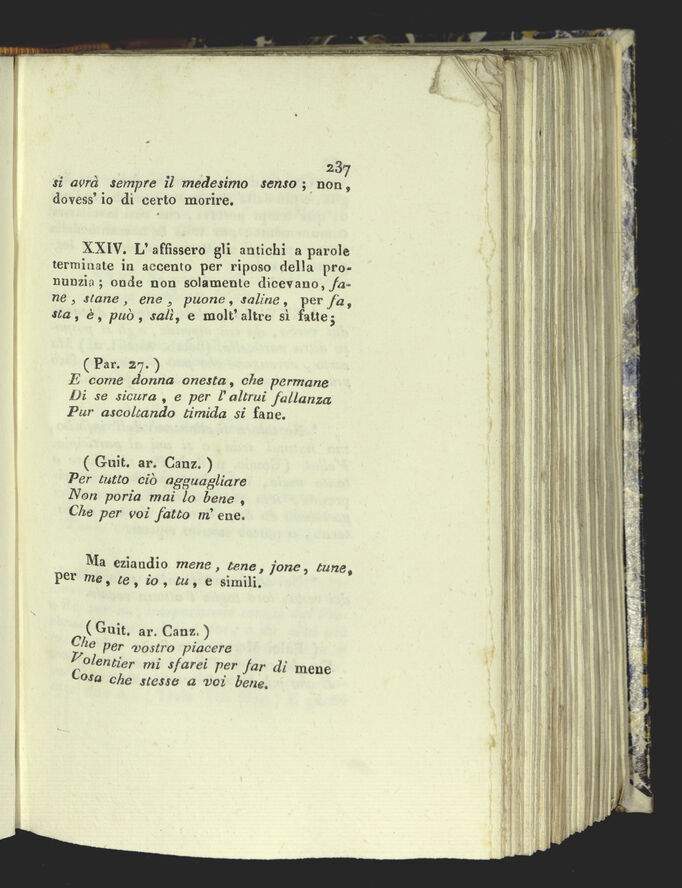 237
si avrà sempre il medesimo senso ; non,
dovess' io di certo morire.
XXIV. L' affissero gli antichi a parole
terminate in accento per riposo della pro-
nunzia ; onde non solamente dicevano, fa-
ne , stane , ene , puone , saline , per fa,
sta , è , può , salì, e molt' altre sì fatte;
( Par. 27. )
E come donna onesta, che permane
Di se sicura , e per l' altrui fallanza
Pur ascoltando timida si fane.
( Guit. ar. Canz. )
Per tutto ciò agguagliare
Non poria mai lo bene ,
Che per voi fatto m' ene.
Ma eziandio mene , tene , jone , tune,
per me, te , io , tu , e simili.
( Guit. ar. Canz. )
Che per vostro piacere
Volentier mi sfarei per far di mene
Cosa che stesse a voi bene.